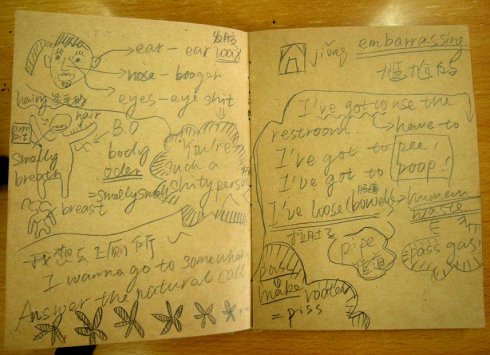 ear - ear wax
nose - booger
eyes - eye shit
hairy
hair
arm pit
B.O
body
oder
= smelly smell
Smelly
breath
breast
You're
such a
shity person
我想去上厕所
I wanna go to somewhere
Answer the natural call
囧 jiǒng
embarrassing
尴尬的
I've got to use the
restroom. have to
I've got to pee!
I've got to poop!
I've loose (bowel)
human
waste
拉肚子
pipe
管道
pass gas
pass
make water
= piss